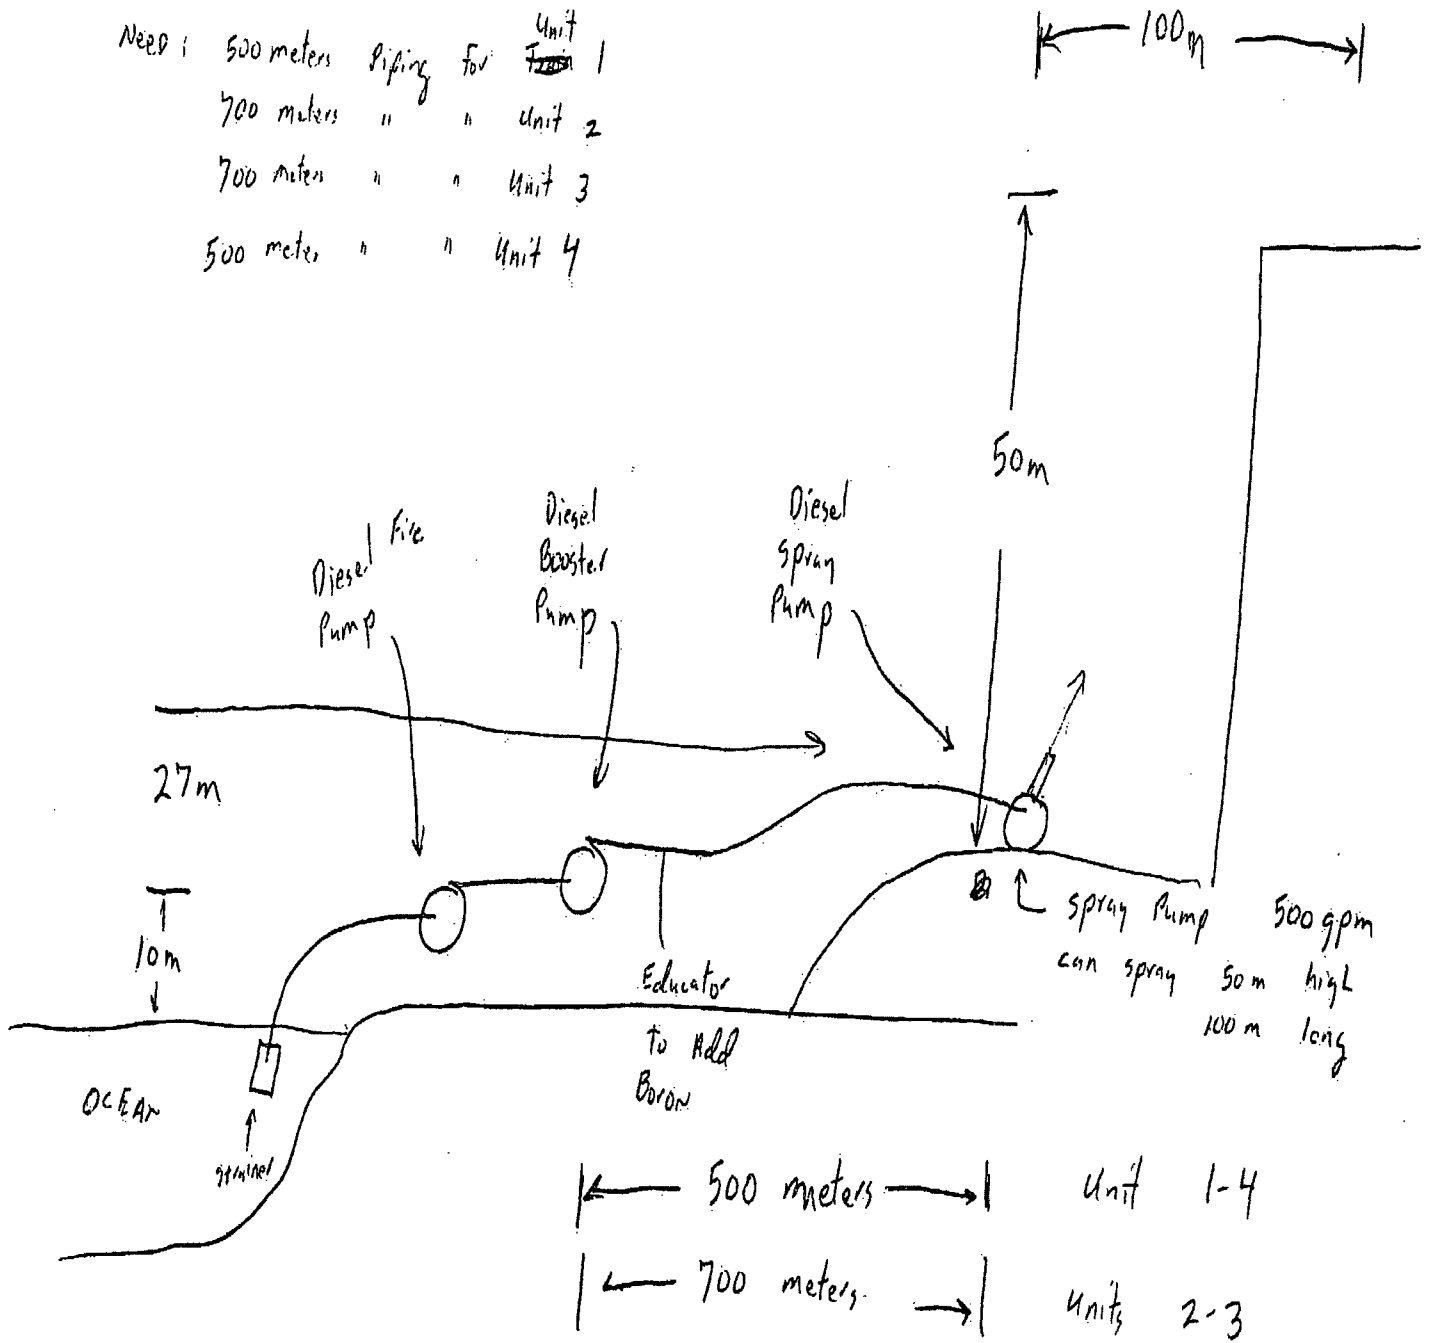 Need: 500 meters Piping for Unit 1
700 meters " " Unit 2
700 meters " " Unit 3
500 meter " " Unit 4
100m
50m
Diesel Fire
Pump
Diesel
Booster
Pump
Diesel
Spray
Pump
27m
10m
OCEAN
Strainer
Educator
to Add
Boron
Spray Pump 500 gpm
can spray 50m high
100m long
500 meters Unit 1-4
700 meters Units 2-3